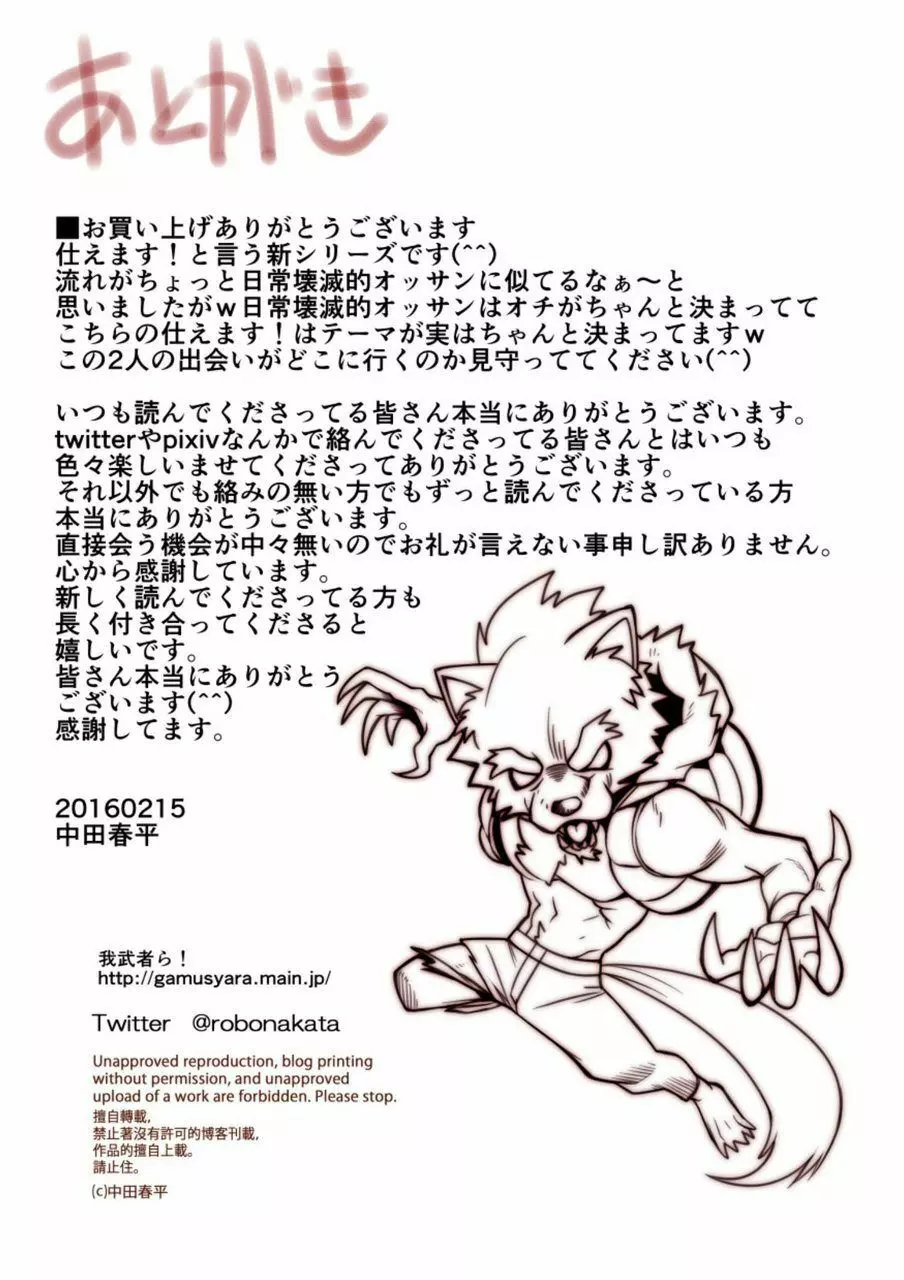 あとがき
■お買い上げありがとうございます
仕えます！と言う新シリーズです(^^)
流れがちょっと日常壊滅的オッサンに似てるなぁ～と
思いましたがｗ日常壊滅的オッサンはオチがちゃんと決まってて
こちらの仕えます！はテーマが実はちゃんと決まってますｗ
この2人の出会いがどこに行くのか見守っててください(^^)
いつも読んでくださってる皆さん本当にありがとうございます。
twitterやpixivなんかで絡んでくださってる皆さんとはいつも
色々楽しいませてくださってありがとうございます。
それ以外でも絡みの無い方でもずっと読んでくださっている方
本当にありがとうございます。
直接会う機会が中々無いのでお礼が言えない事申し訳ありません。
心から感謝しています。
新しく読んでくださってる方も
長く付き合ってくださると
嬉しいです。
皆さん本当にありがとう
ございます(^^)
感謝してます。
20160215
中田春平
我武者ら！
http://gamusyara.main.jp/
Twitter　@robonakata
Unapproved reproduction, blog printing
without permission, and unapproved
upload of a work are forbidden. Please stop.
擅自轉載,
禁止著沒有許可的博客刊載,
作品的擅自上載。
請止住。
(c)中田春平